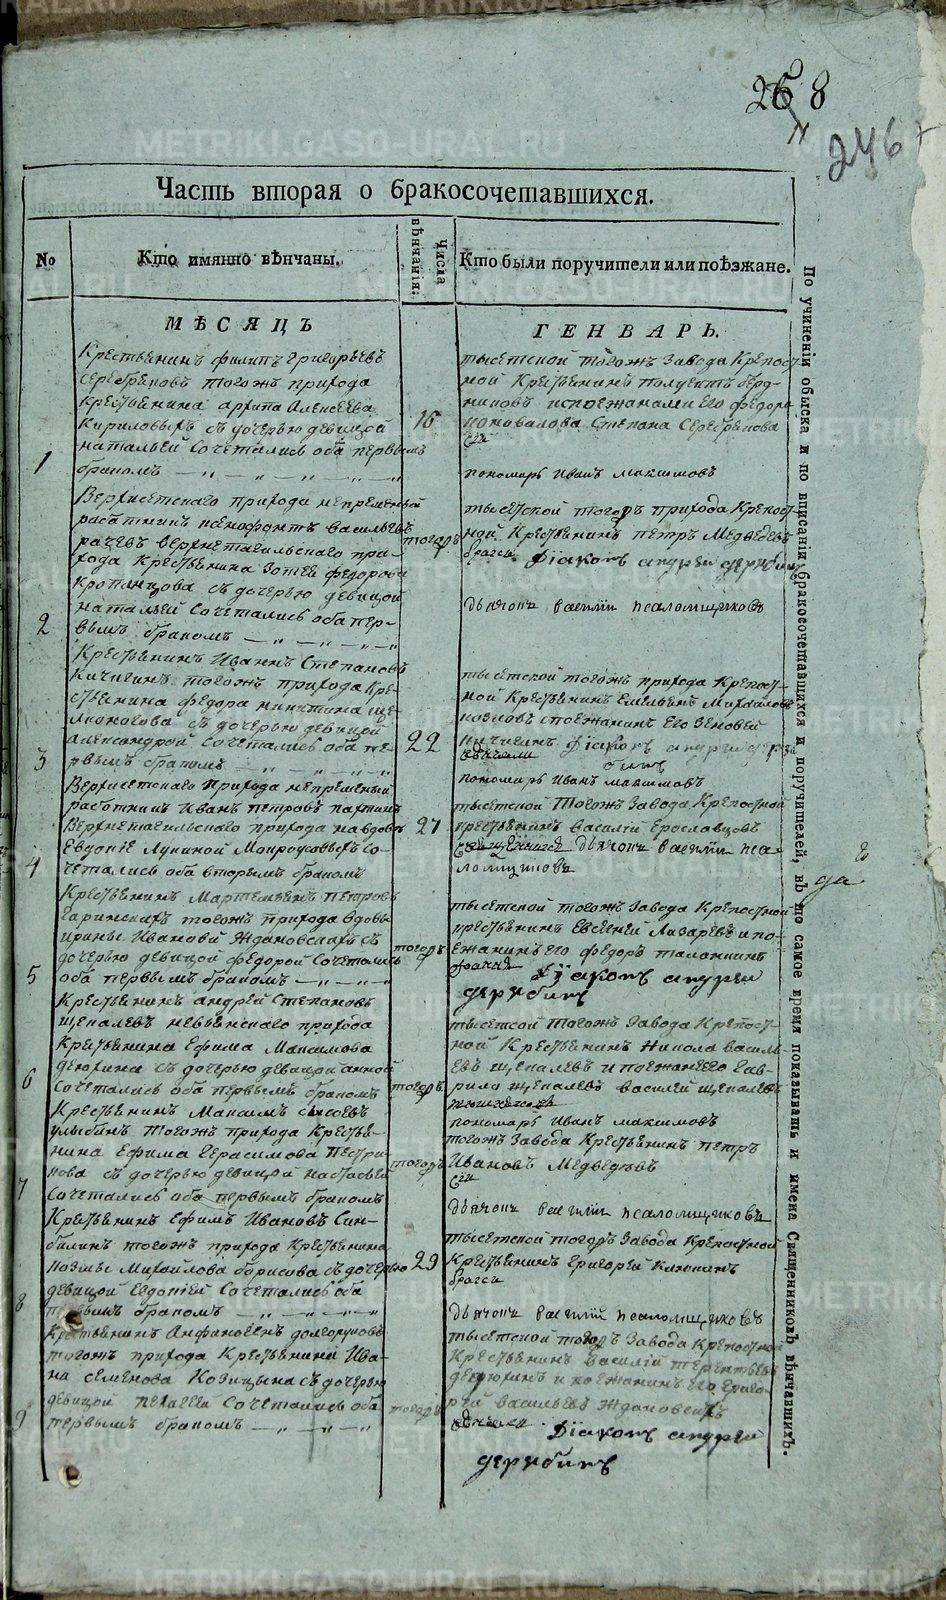 268
246
Часть вторая о бракосочетавшихся.
№
Кто имянно вѣнчаны.
Числа вѣнчанія:
Кто были поручители или поѣзжане.
МѢСЯЦЪ
ГЕНВАРЬ.
1
Крестьянинъ филипъ Григорьевъ
Серебряковъ тогожъ прихода
крестьянина архипа Алексеева
Кириловыхъ съ дочерью девицой
натальей Сочетались оба первымъ
бракомъ
16
тысетской тогожъ Завода Крепост
ной Крестьянинъ
федора
Коновалова Степана Серебрякова
пономарь Иванъ максимовъ
2
Верхисетскаго прихода непременной
работникъ ксенофонтъ васильевъ
рачевъ верхнетагильскаго при-
хода Крестьянина Зотея федорова
съ дочерью девицой
натальей Сочетались оба пер-
вымъ бракомъ
тогожъ
тысетской тогожъ прихода Крепост
ной Крестьянинъ петръ Медведевъ
Діаконъ андреи дерябинъ
дьячокъ василіи псаломщиковъ
3
Крестьянинъ Иванъ Степановъ
Кичигинъ тогожъ прихода Кре-
стьянина федора никитина
съ дочерью девицой
александрой Сочетались оба пе-
рвымъ бракомъ
22
тысетской тогожъ прихода Крепост-
ной Крестьянинъ Емельянъ Михаиловъ
козловъ поезжанинъ Его Зеновей
кичигинъ Діаконъ андреи деря
бинъ
пономарь Иванъ максимовъ
4
Верхисетскаго Прихода непременный
работникъ Иванъ Петровъ
Верхнетагильскаго прихода на вдове
Евдокіе Лукиной Мокроусовыхъ Со-
четались оба вторымъ бракомъ
27
тысетской Тогожъ Завода Крепостной
крестьянинъ василій Ерославцовъ
дьячокъ василіи пса-
ломщиковъ
5
Крестьянинъ Мартемьянъ Петровъ
Гаринскихъ тогожъ прихода вдовы
ирины Ивановой Ждановскихъ съ
дочерью девицой федорой Сочетались
оба первымъ бракомъ
тогожъ
тысетской тогожъ Завода Крепостной
крестьянинъ Евсегней Лазаревъ и по-
езжанинъ его федоръ
Діаконъ андреи
дерябинъ
6
Крестьянинъ андрей Степановъ
щекалевъ невьянскаго прихода
Крестьянина Ефима Максимова
съ дочерью девицой анной
Сочетались оба первымъ бракомъ
тогожъ
тысетской Тогожъ Завода Крепост-
ной Крестьянинъ Никола василь-
евъ щекалевъ и поезжане его Гав-
рило щекалевъ василей щекалевъ
пономарь Иванъ максимовъ
7
Крестьянинъ Максимъ
улыбинъ тогожъ прихода Крестья-
нина Ефима Герасимова
съ дочерью девицой настасьей
Сочетались оба первымъ бракомъ
тогожъ
тогожъ Завода Крестьянинъ петръ
Ивановъ Медведевъ
дьячокъ василіи псаломщиковъ
8
Крестьянинъ Ефимъ Ивановъ Син-
билинъ тогожъ прихода Крестьянина
козмы Михаилова борисова съ дочерью
девицой Евдокіей Сочетались оба
первымъ бракомъ
29
тысетской тогожъ Завода Крепостной
Крестьянинъ Григорей Клюкинъ
дьячокъ василіи псаломщиковъ
9
Крестьянинъ Анфиногенъ долгоруковъ
тогожъ прихода Крестьянина Ива-
на Семенова Козицына съ дочерью
девицой пелагеей Сочетались оба
первымъ бракомъ
тогожъ
тысетской тогожъ Завода Крепостной
Крестьянинъ василій терентьевъ
и поезжанинъ его Григо-
рей васильевъ Ждановскихъ
Діаконъ андреи
дерябинъ
По учиненіи обыска и по вписаніи бракосочетавшихся и поручителей, въ то самое время показывать и имена Священниковъ вѣнчавшихъ.
да
METRIKI.GASO-URAL.RU